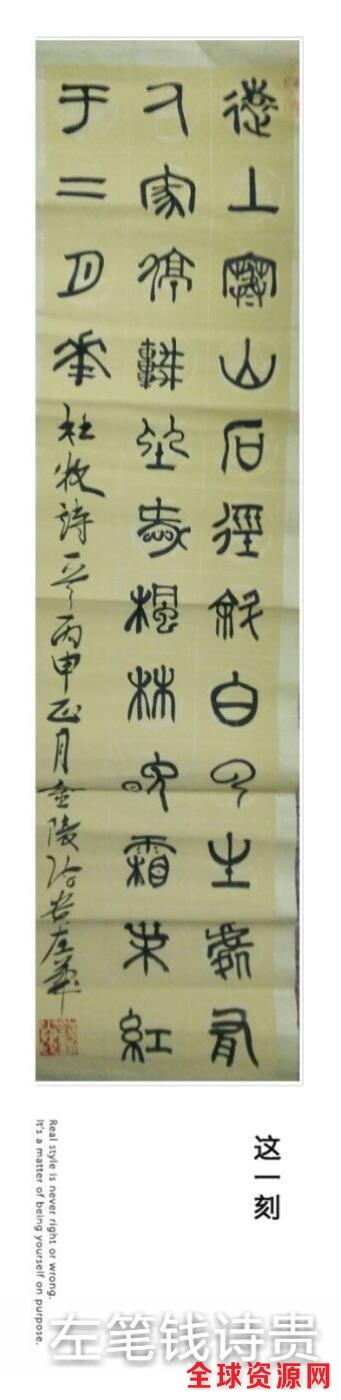 遠上寒山石徑斜白云生處有
人家停車坐愛楓林晚霜葉紅
于二月花 杜牧詩一首 丙申正月金陵 左筆
这一刻
Real style is never right or wrong.
It's a matter of being yourself on purpose.
左笔钱诗贵
全球资源网